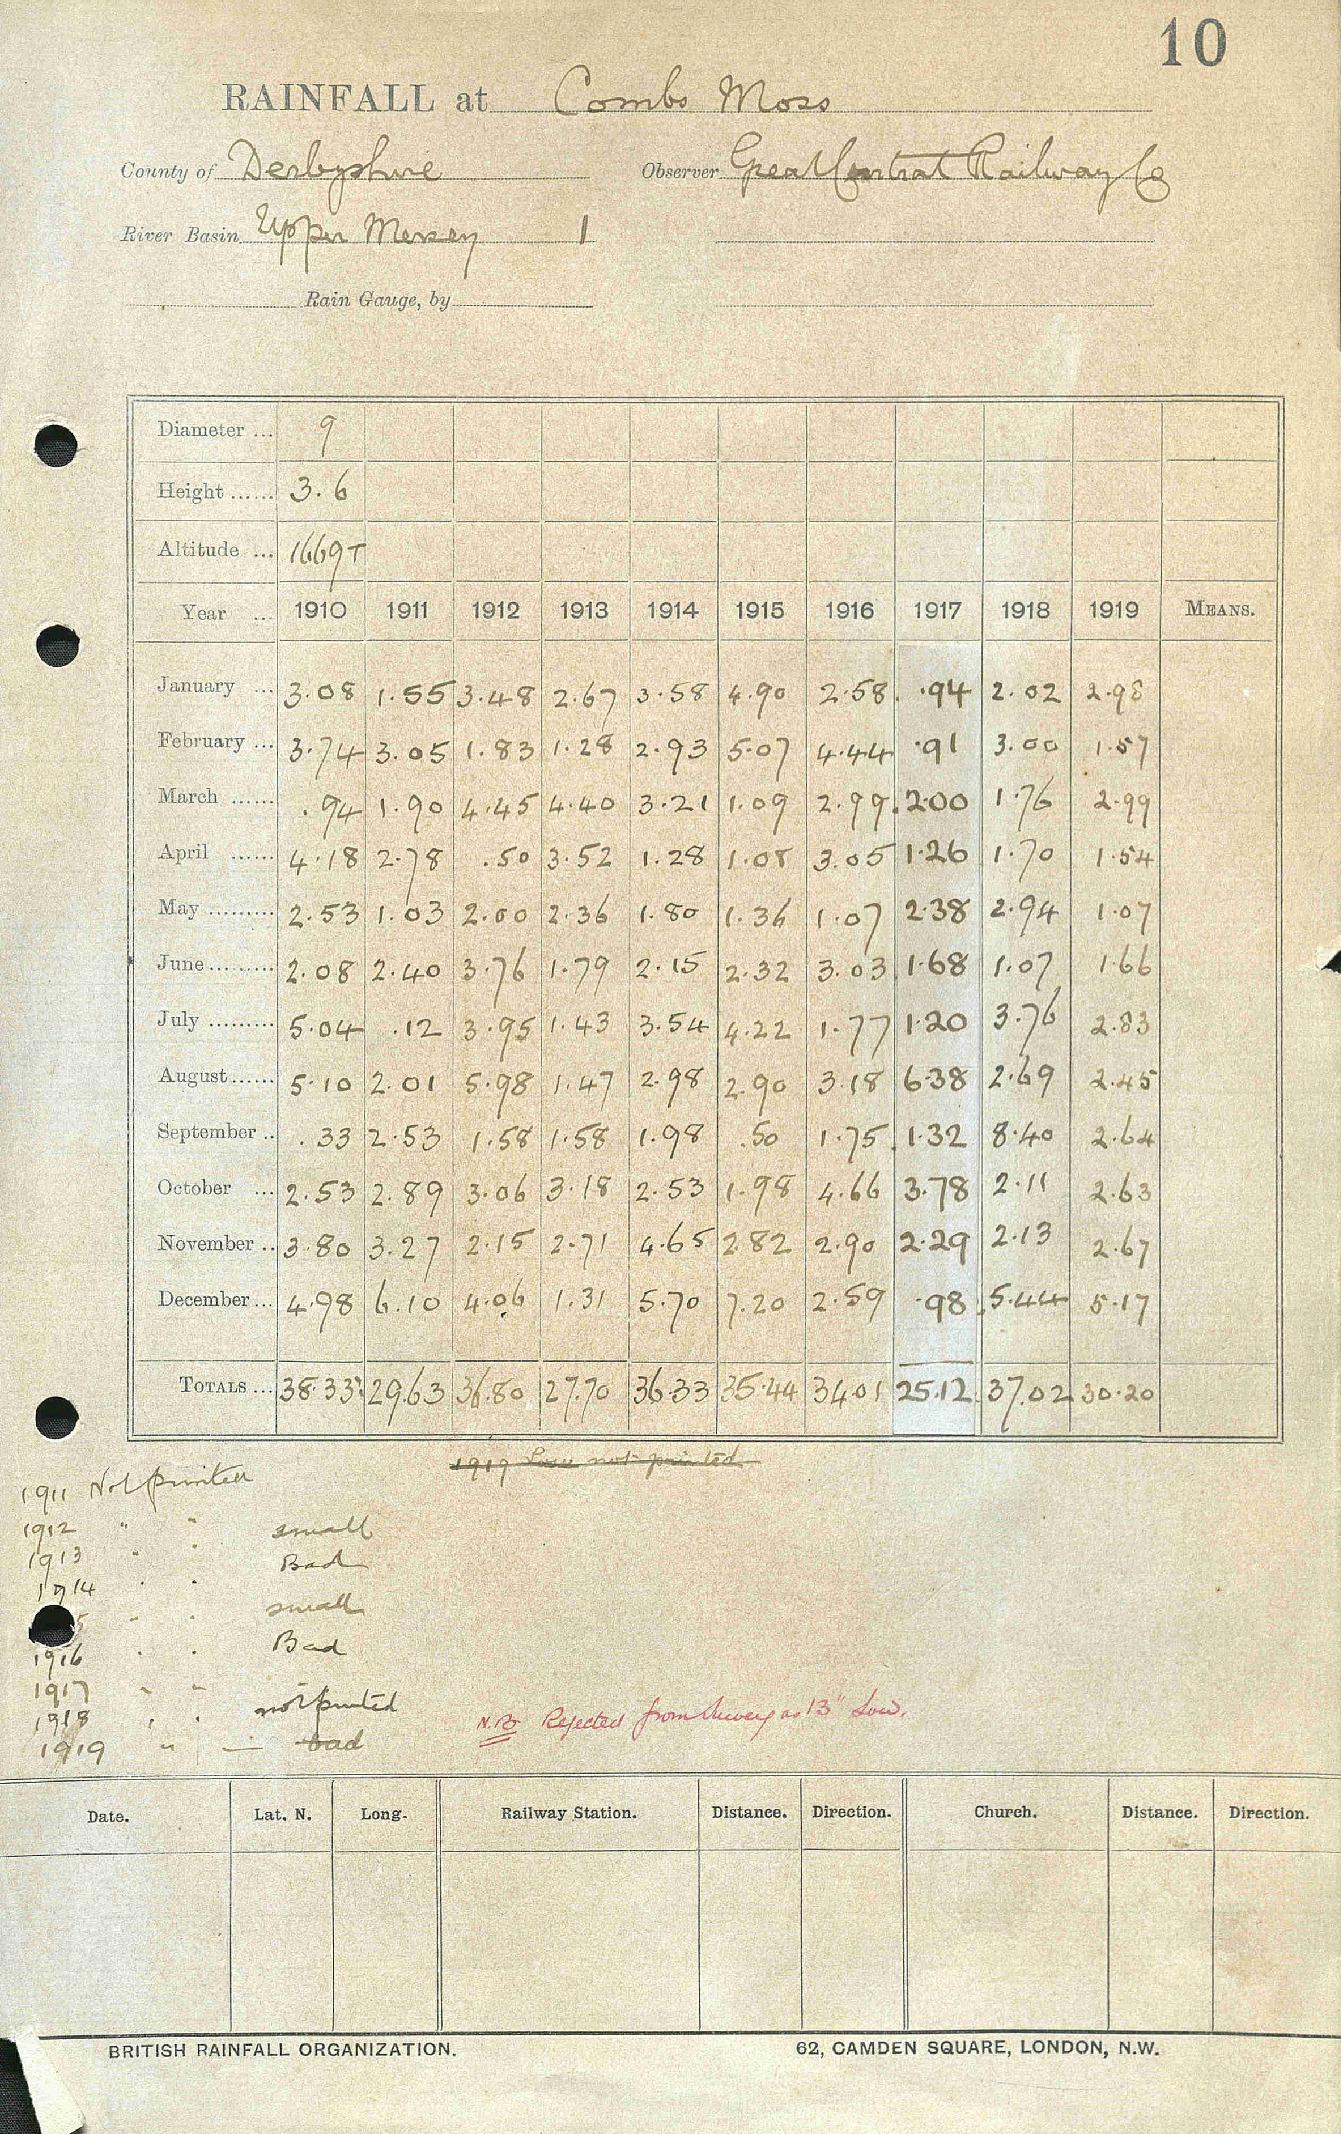 10
RAINFALL at Combs Moss
County of Derbyshire Observer Great Central Railway Co
River Basin Upper Mersey 1
Rain Gauge, by
Diameter ... 9
Height ...... 3.6
Altitude ... 1669T
Year ... 1910 1911 1912 1913 1914 1915 1916 1917 1918 1919 MEANS.
January ... 3.08 1.55 3.48 2.67 3.58 4.90 2.58 .94 2.02 2.98
February ... 3.74 3.05 1.83 1.28 2.93 5.07 4.44 .91 3.00 1.57
March ...... .94 1.90 4.45 4.40 3.21 1.09 2.99 2.00 1.76 2.99
April ...... 4.18 2.78 .50 3.52 1.28 1.08 3.05 1.26 1.70 1.54
May ......... 2.53 1.03 2.00 2.36 1.80 1.36 1.07 2.38 2.94 1.07
June ......... 2.08 2.40 3.76 1.79 2.15 2.32 3.03 1.68 1.07 1.66
July ......... 5.04 .12 3.95 1.43 3.54 4.22 1.77 1.20 3.76 2.83
August ...... 5.10 2.01 5.98 1.47 2.98 2.90 3.18 6.38 2.69 2.45
September .. .33 2.53 1.58 1.58 1.98 .50 1.75 1.32 8.40 2.64
October ... 2.53 2.89 3.06 3.18 2.53 1.98 4.66 3.78 2.11 2.63
November .. 3.80 3.27 2.15 2.71 4.65 2.82 2.90 2.29 2.13 2.67
December ... 4.98 6.10 4.06 1.31 5.70 7.20 2.59 .98 5.44 5.17
TOTALS ... 38.33 29.63 36.80 27.70 36.33 35.44 34.01 25.12 37.02 30.20
1919 not printed
1911 Not printed
1912 " " small
1913 " " Bad
1914 " "
5 " " small
1916 " " Bad
1917 " "
1918 " " not printed
1919 " — bad
N.B. Rejected from as 13" Low.
Date. Lat. N. Long. Railway Station. Distance. Direction. Church. Distance. Direction.
BRITISH RAINFALL ORGANIZATION. 62, CAMDEN SQUARE, LONDON, N.W.